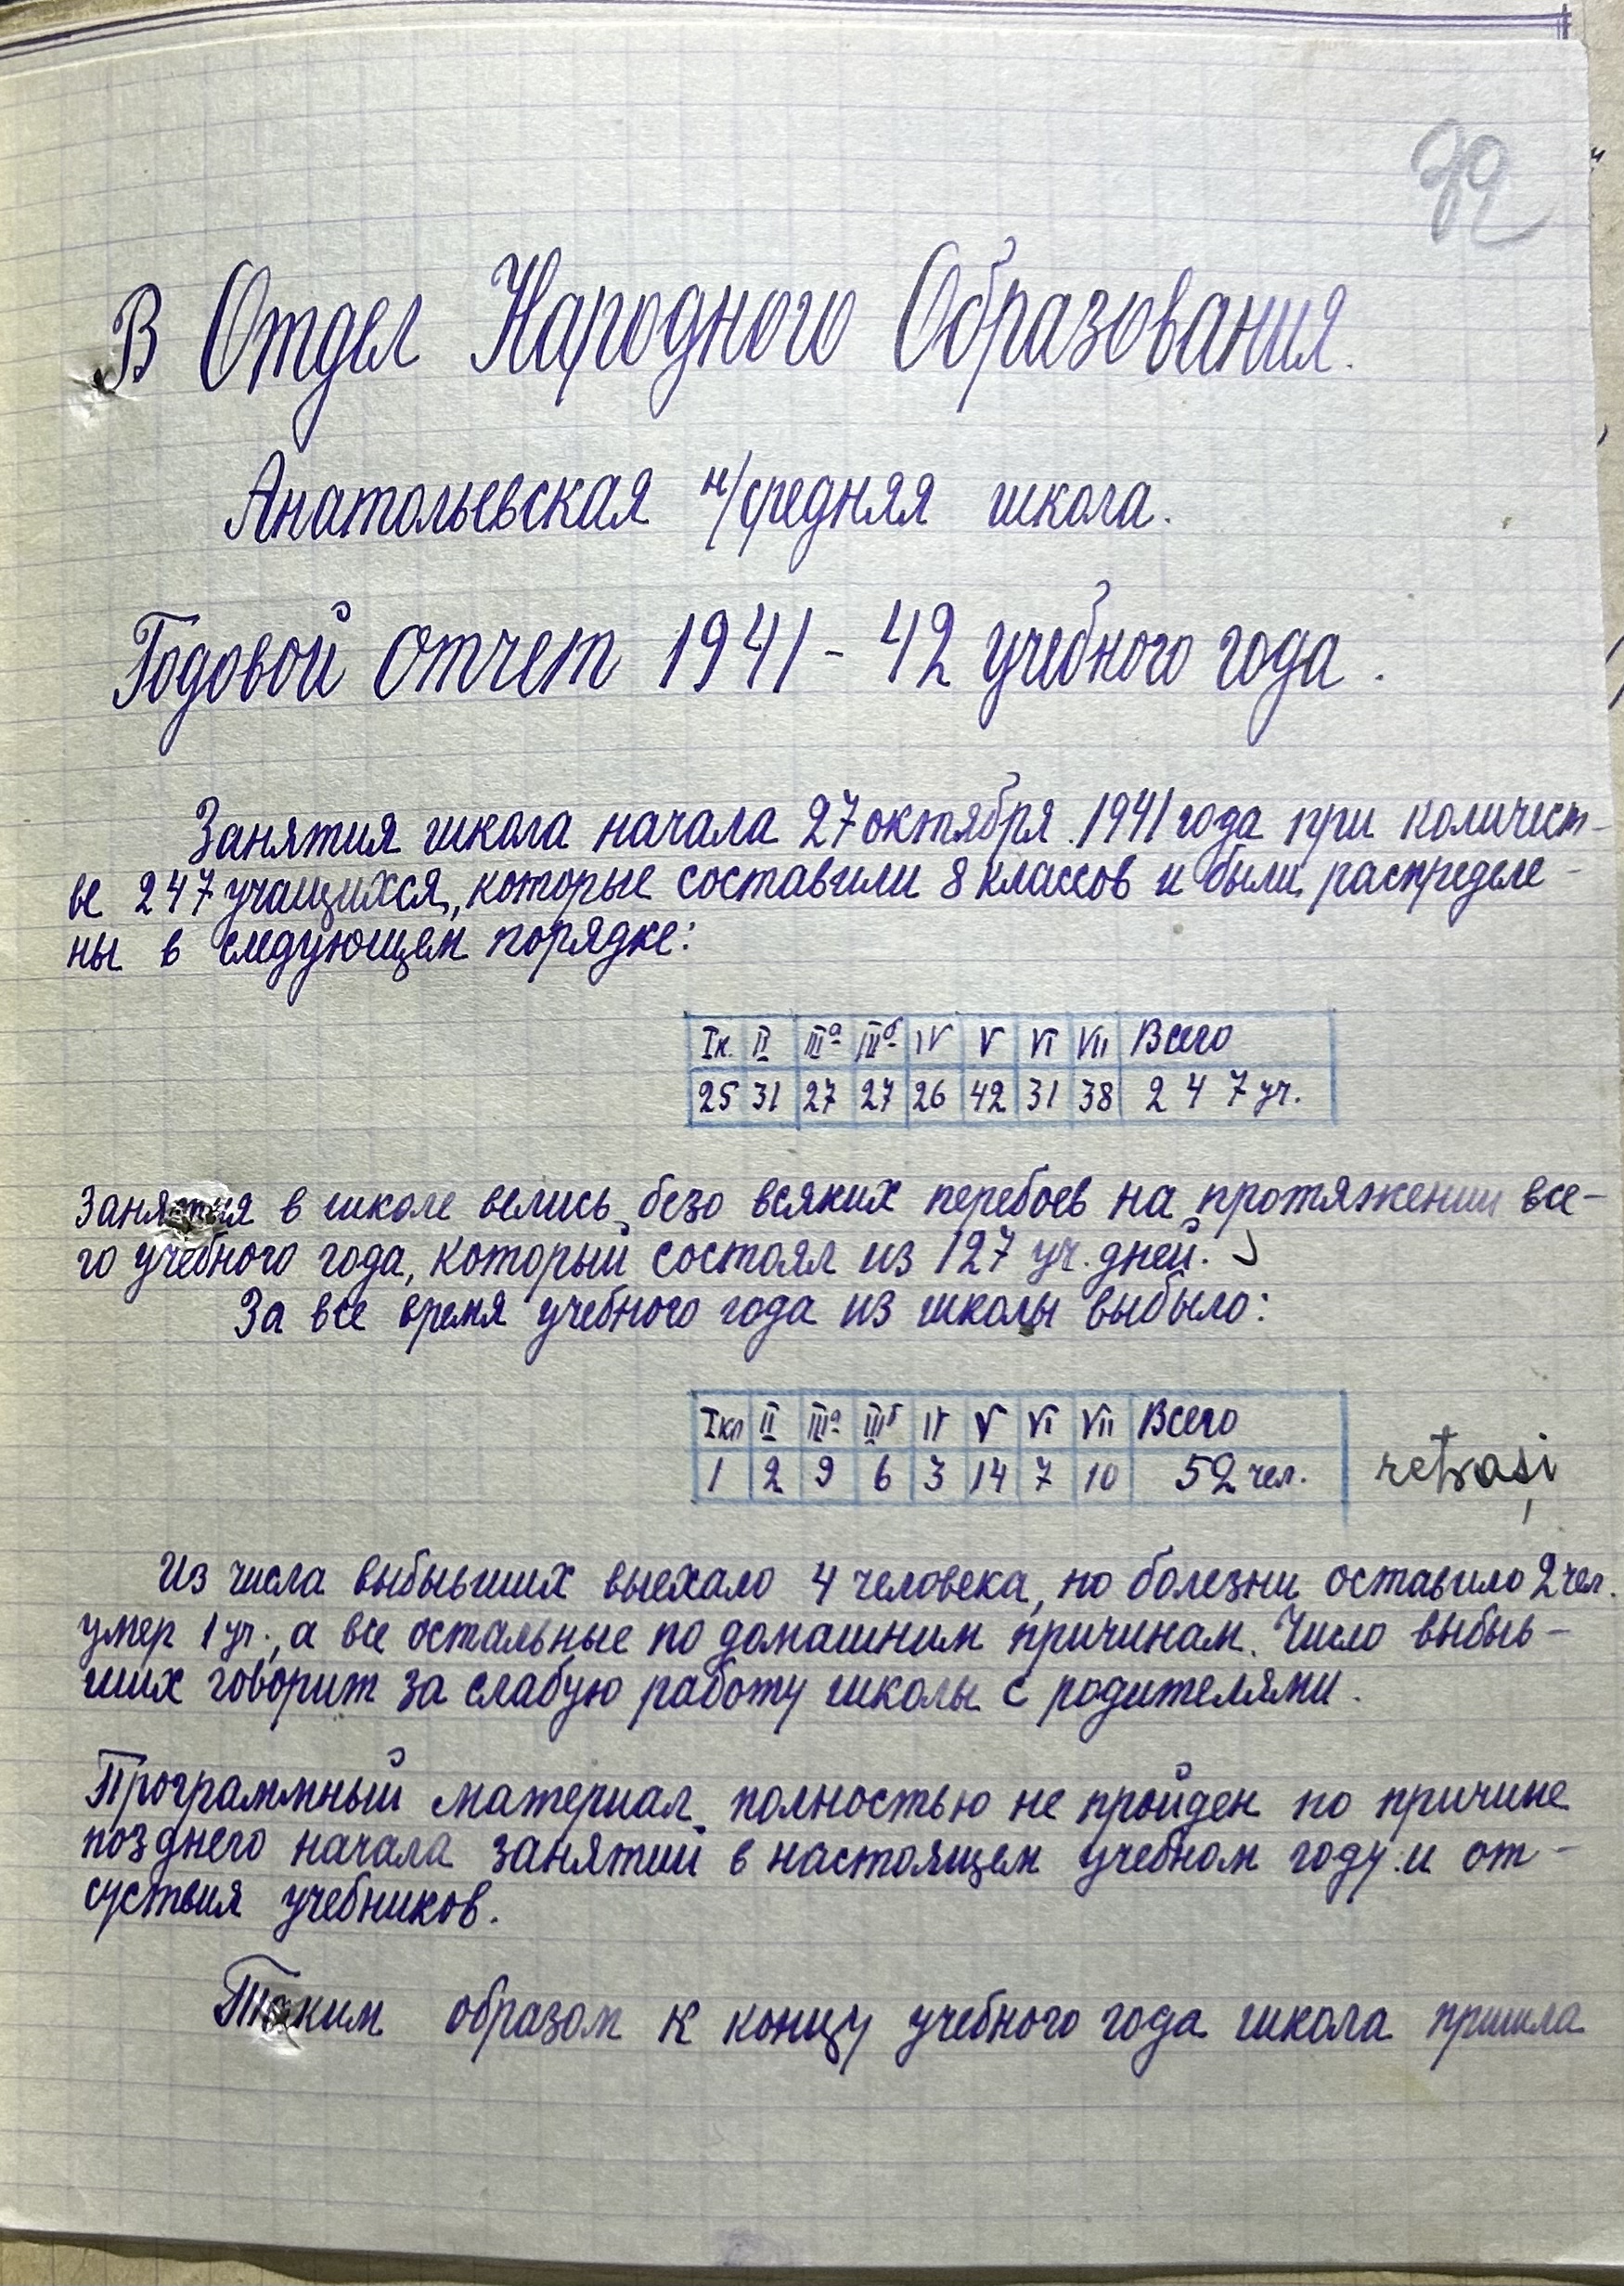 92
В Отдел Народного Образования.
Анатольевская н/средняя школа.
Годовой отчет 1941 - 42 учебного года.
Занятия школа начала 27 октября 1941 года при количест-
ве 247 учащихся, которые составили 8 классов и были распределе-
ны в следующем порядке:
Iк. II IIIа IIIб IV V VI VII Всего
25 31 27 27 26 42 31 38 247 уч.
Занятия в школе велись безо всяких перебоев на протяжении все-
го учебного года, который состоял из 127 уч. дней.
За все время учебного года из школы выбыло:
Iкл II IIIа IIIб IV V VI VII Всего
1 2 9 6 3 14 7 10 52 чел. retrași
Из числа выбывших выехало 4 человека, по болезни оставило 2 чел.
умер 1 уч., а все остальные по домашним причинам. Число выбыв-
ших говорит за слабую работу школы с родителями.
Программный материал полностью не пройден по причине
позднего начала занятий в настоящем учебном году и от-
суствия учебников.
Таким образом к концу учебного года школа пришла